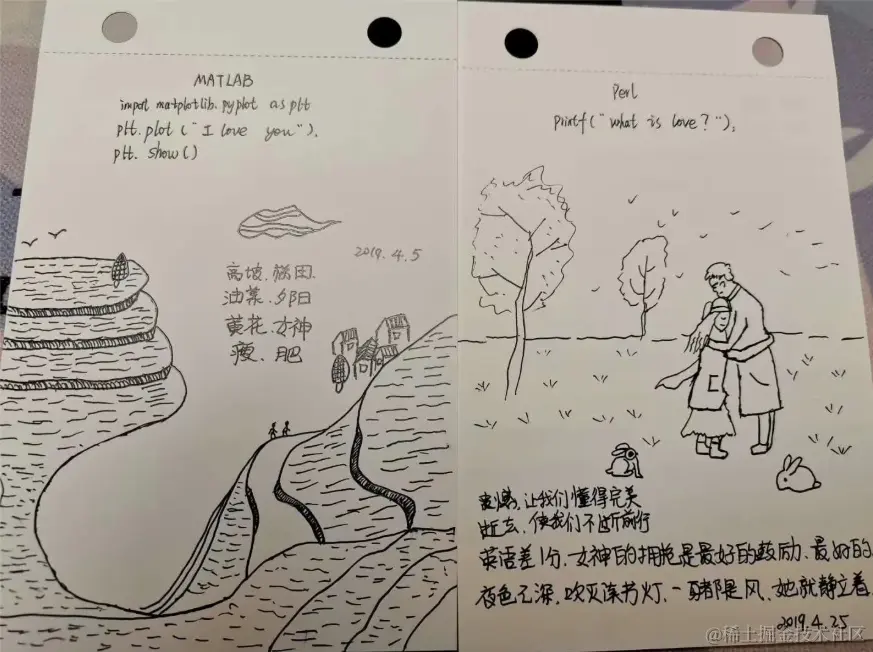 MATLAB
import matplotlib.pyplot as plt
plt.plot("I love you").
plt. show()
2019.4.5
高坡、梯田.
油菜、夕阳
黄花、女神
瘦、肥
Perl
printf("what is love?"),
让我们懂得完美
逝去、使我们不断前行
英语差1分、女神的拥抱是最好的鼓励、最好的
夜色已深、吹灭读书灯、一 是风、她就静立着
2019.4.25
@稀土掘金技术社区